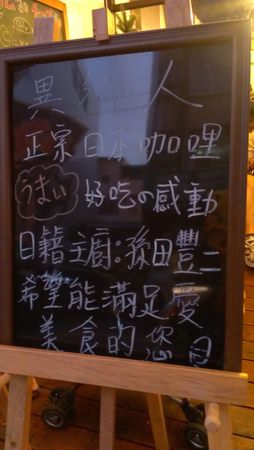 異 人
正宗日本咖哩
うまい 好吃の感動
日籍主廚:田豐二
希望能滿足愛
美食的您